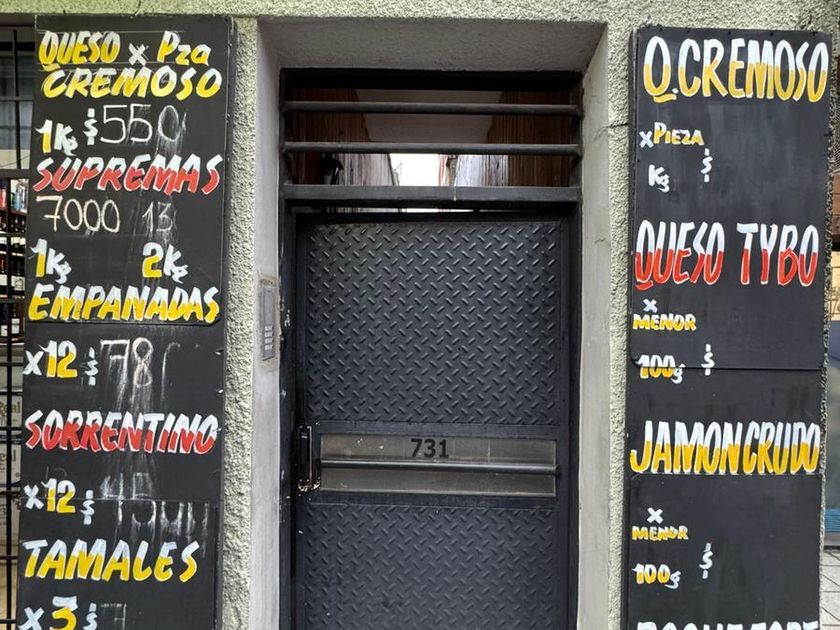 QUESO x Pza
CREMOSO
1Kg $ 550
SUPREMAS
7000 13
1Kg 2Kg
EMPANADAS
x12 $ 78
SORRENTINO
x12 $
TAMALES
x3 $
731
Q.CREMOSO
x PIEZA
Kg $
QUESO TYBO
x
MENOR
100g $
JAMON CRUDO
x
MENOR
100g $